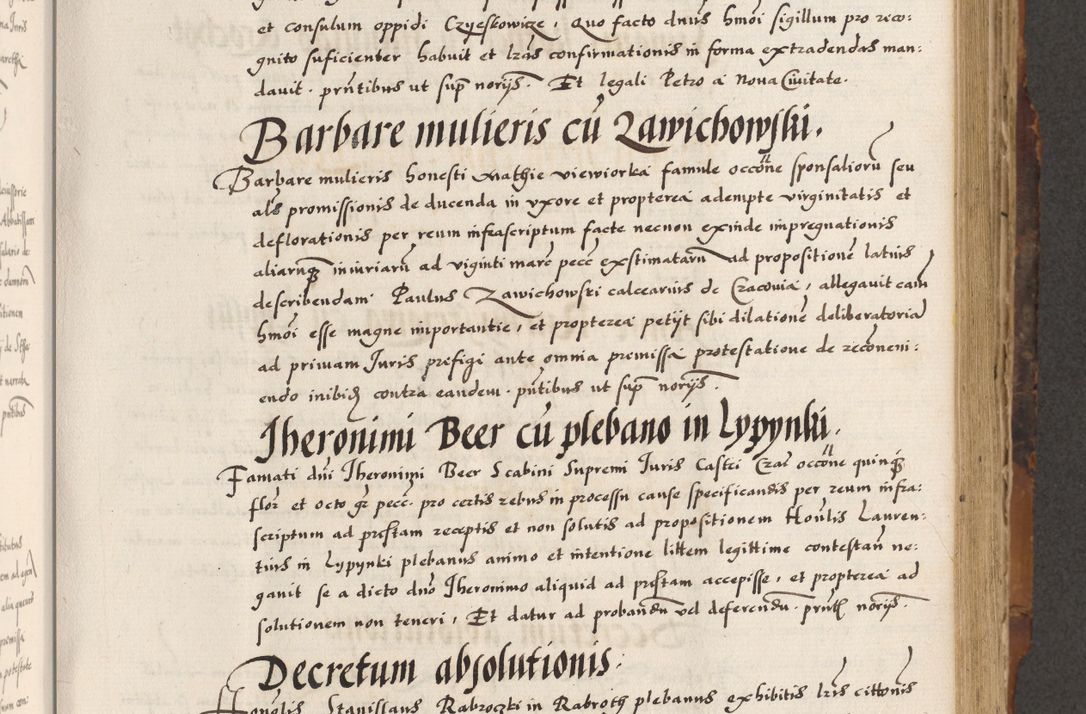 et consulum oppidi Czyeskowicze, Quo facto dnus hmoi sigillum pro reco:
gnito suficienter habuit et lras confirmationis in forma extradendas man:
davit. prntibus ut sup norijs. Et legali Petro a Nova Civitate.
Barbare mulieris cu Zawichowski.
Barbare mulieris honesti Mathie viewiorka famule occone sponsalioru seu
als promissionis de ducenda in uxore et propterea adempte virginitatis et
deflorationis per reum infrascriptum facte necnon exinde impregnationis
aliarumque iniuriaru ad viginti marc pecc existimataru ad propositione latius
describendam Paulus Zawichowski calcearius de Cracovia, allegavit cam
hmoi esse magne importantie, et propterea petijt sibi dilatione deliberatoria
ad primam Juris prefigi ante omnia premissa protestatione de reconveni:
endo inibidem contra eandem. pntibus ut sup norijs.
Jheronimi Beer cu plebano in Lypynki.
Famati dni Jheronimi Beer Scabini Supremi Juris Castri Crac occone quinque
flor et octo gr pecc. pro certis rebus in processu cause specificandis per reum infra:
scriptum ad prestam receptis et non solutis ad propositionem Honlis Lauren:
tius in Lypynki plebanus animo et intentione littem legittime contestan ne:
gavit se a dicto dno Jheronimo aliquid ad prestam accepisse, et propterea ad
solutionem non teneri, Et datur ad probandu vel deferendu. prntibus norijs.
Decretum absolutionis.
Honolis Stanislaus Rabroczki in Rabroth plebanus exhibitis lris cittonis